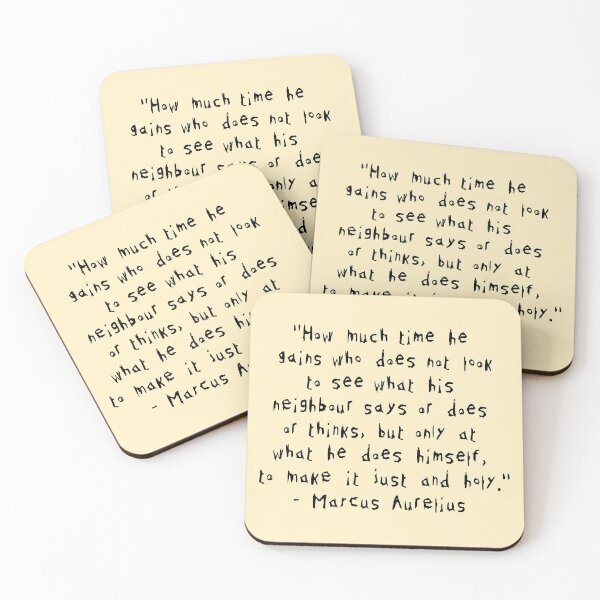 "How much time he
gains who does not look
to see what his
neighbour says or
or
at
"How much time he
gains who does not look
to see what his
neighbour says or does
or thinks, but only at
what he does himself,
holy."
"How much time he
gains who does not look
to see what his
neighbour says or does
or thinks, but only at
what he does
to make it just
- Marcus
"How much time he
gains who does not look
to see what his
neighbour says or does
or thinks, but only at
what he does himself,
to make it just and holy."
- Marcus Aurelius